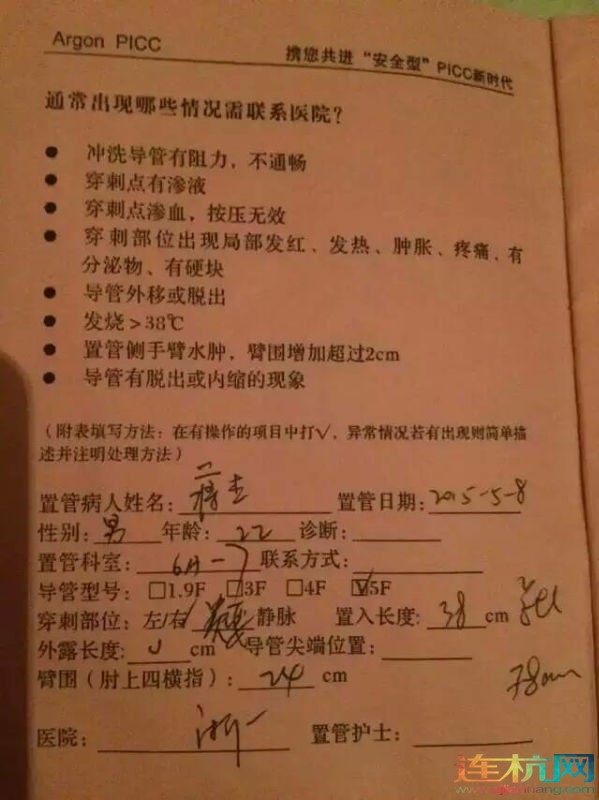 Argon PICC
携您共进“安全型”PICC新时代
通常出现哪些情况需联系医院？
● 冲洗导管有阻力，不通畅
● 穿刺点有渗液
● 穿刺点渗血，按压无效
● 穿刺部位出现局部发红、发热、肿胀、疼痛、有
分泌物、有硬块
● 导管外移或脱出
● 发烧＞38℃
● 置管侧手臂水肿，臂围增加超过2cm
● 导管有脱出或内缩的现象
（附表填写方法：在有操作的项目中打√，异常情况若有出现则简单描
述并注明处理方法）
置管病人姓名： 置管日期：2015-5-8
性别：男 年龄：22 诊断：
置管科室： 联系方式：
导管型号：□1.9F □3F □4F ☑5F
穿刺部位：左/右 静脉 置入长度：38 cm
外露长度： cm 导管尖端位置：
臂围（肘上四横指）：24 cm
78cm
医院：浙一 置管护士：
连杭网